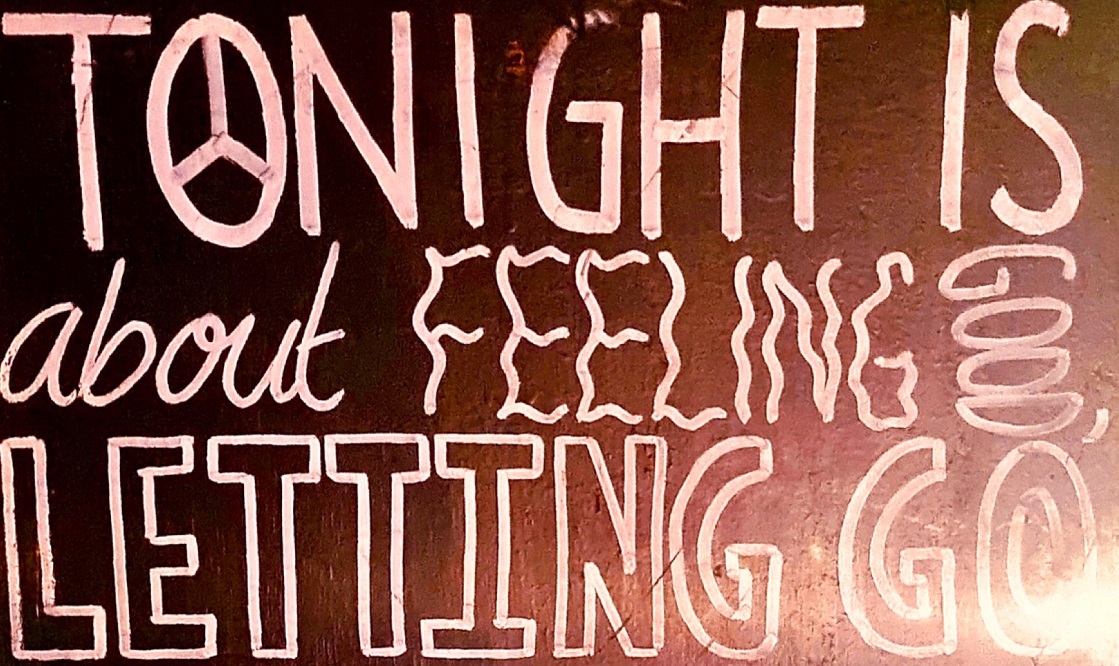 TONIGHT IS
about FEELING GOOD,
LETTING GO